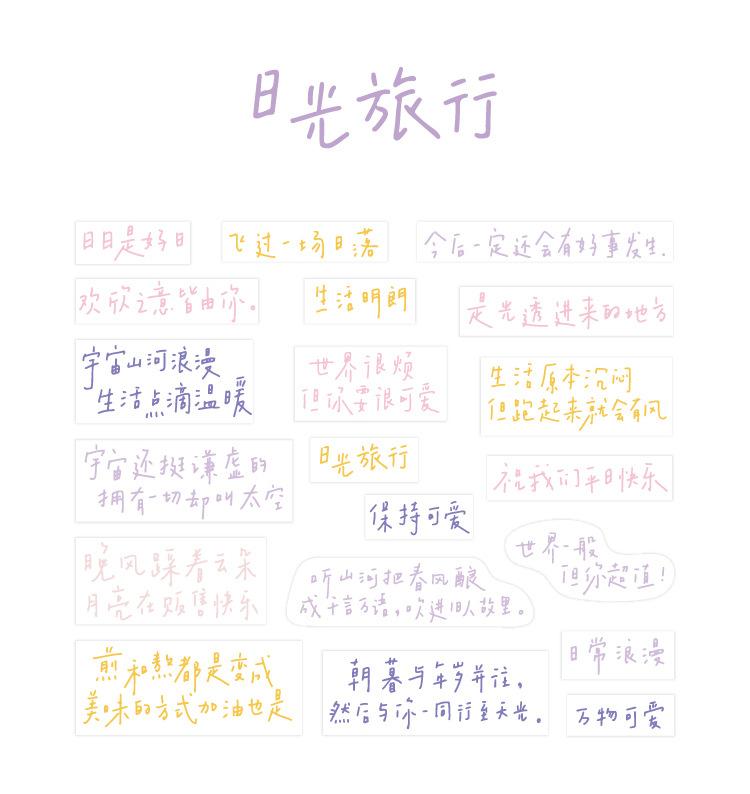 日光旅行
日日是好日
飞过一场日落
今后一定还会有好事发生.
欢欣之意皆由你。
生活明朗
是光透进来的地方
宇宙山河浪漫
生活点滴温暖
世界很烦
但你要很可爱
生活原本沉闷
但跑起来就会有风
宇宙还挺谦虚的
拥有一切却叫太空
日光旅行
祝我们平日快乐
保持可爱
世界一般
但你超值!
晚风踩着云朵
月亮在贩售快乐
听山河把春风酿
成千言万语,吹进旧人故里。
日常浪漫
煎和熬都是变成
美味的方式加油也是
朝暮与年岁并往,
然后与你一同行至天光。
万物可爱